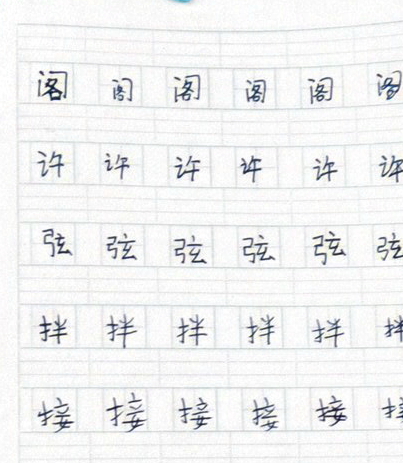 阁 阁 阁 阁 阁 阁
许 许 许 许 许 许
弦 弦 弦 弦 弦 弦
拌 拌 拌 拌 拌 拌
接 接 接 接 接